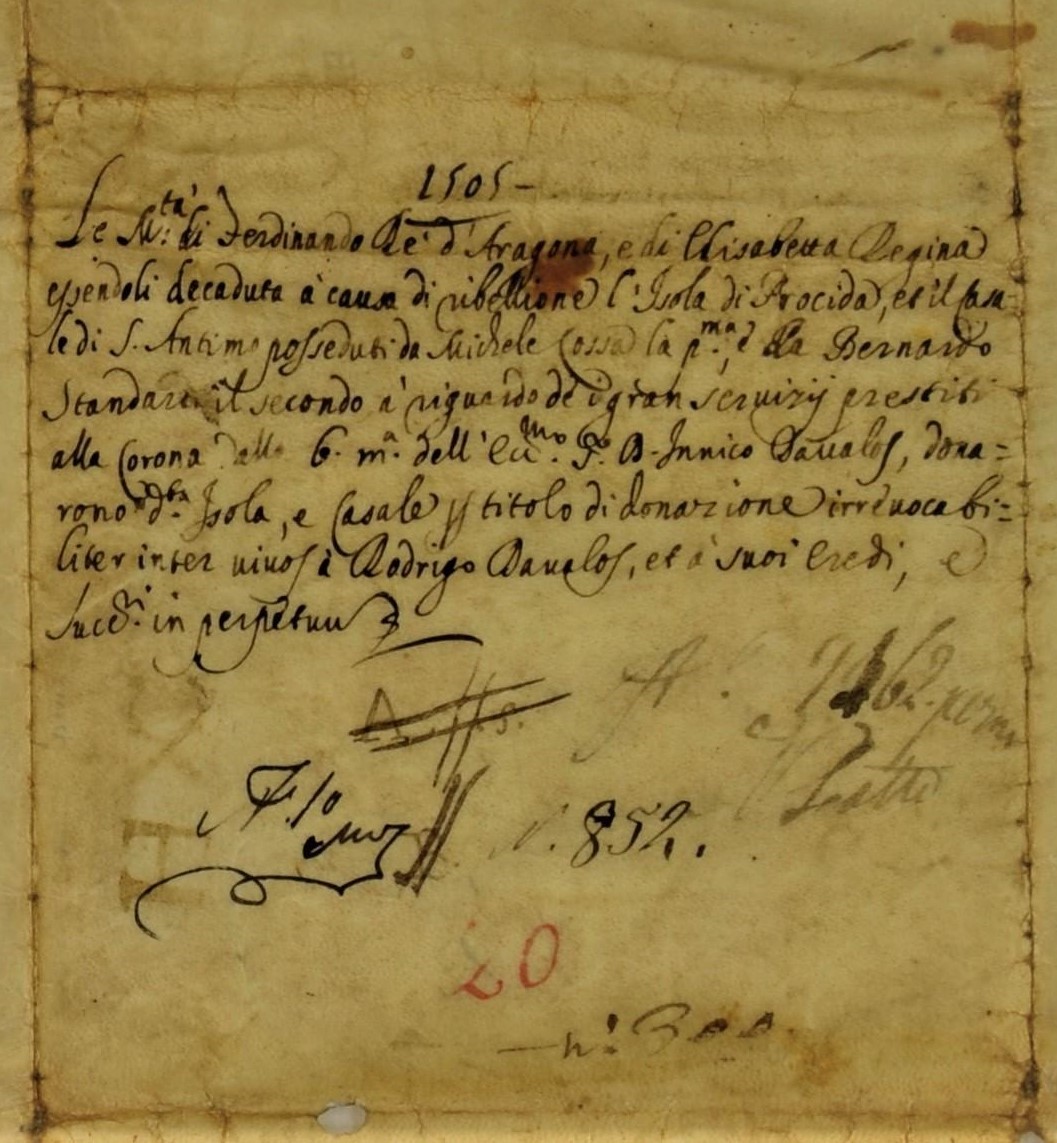 1505 -
Le M.tà di Ferdinando Rè d'Aragona, e di Elisabetta Regina
essendoli decaduta à causa di ribellione l'Isola di Procida, et il Casa=
le di S. Antimo posseduti da Michele Cossa la p.ma, e da Bernardo
il secondo à riguardo de i gran servizij prestiti
alla Corona dalla b. m.a dell'Ecc.mo S.r D. Innico Davalos, dona=
rono d.ta Isola, e Casale titolo di donazione irrevocabi=
liter inter vivos à Rodrigo Davalos, et à suoi Eredi, e
Succ.ri in perpetuu
N. 852.
20
n.° 300